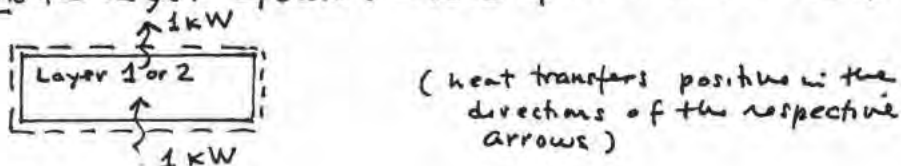 1 kW
Layer 1 or 2
(heat transfers positive in the
directions of the respective
arrows)
1 kW